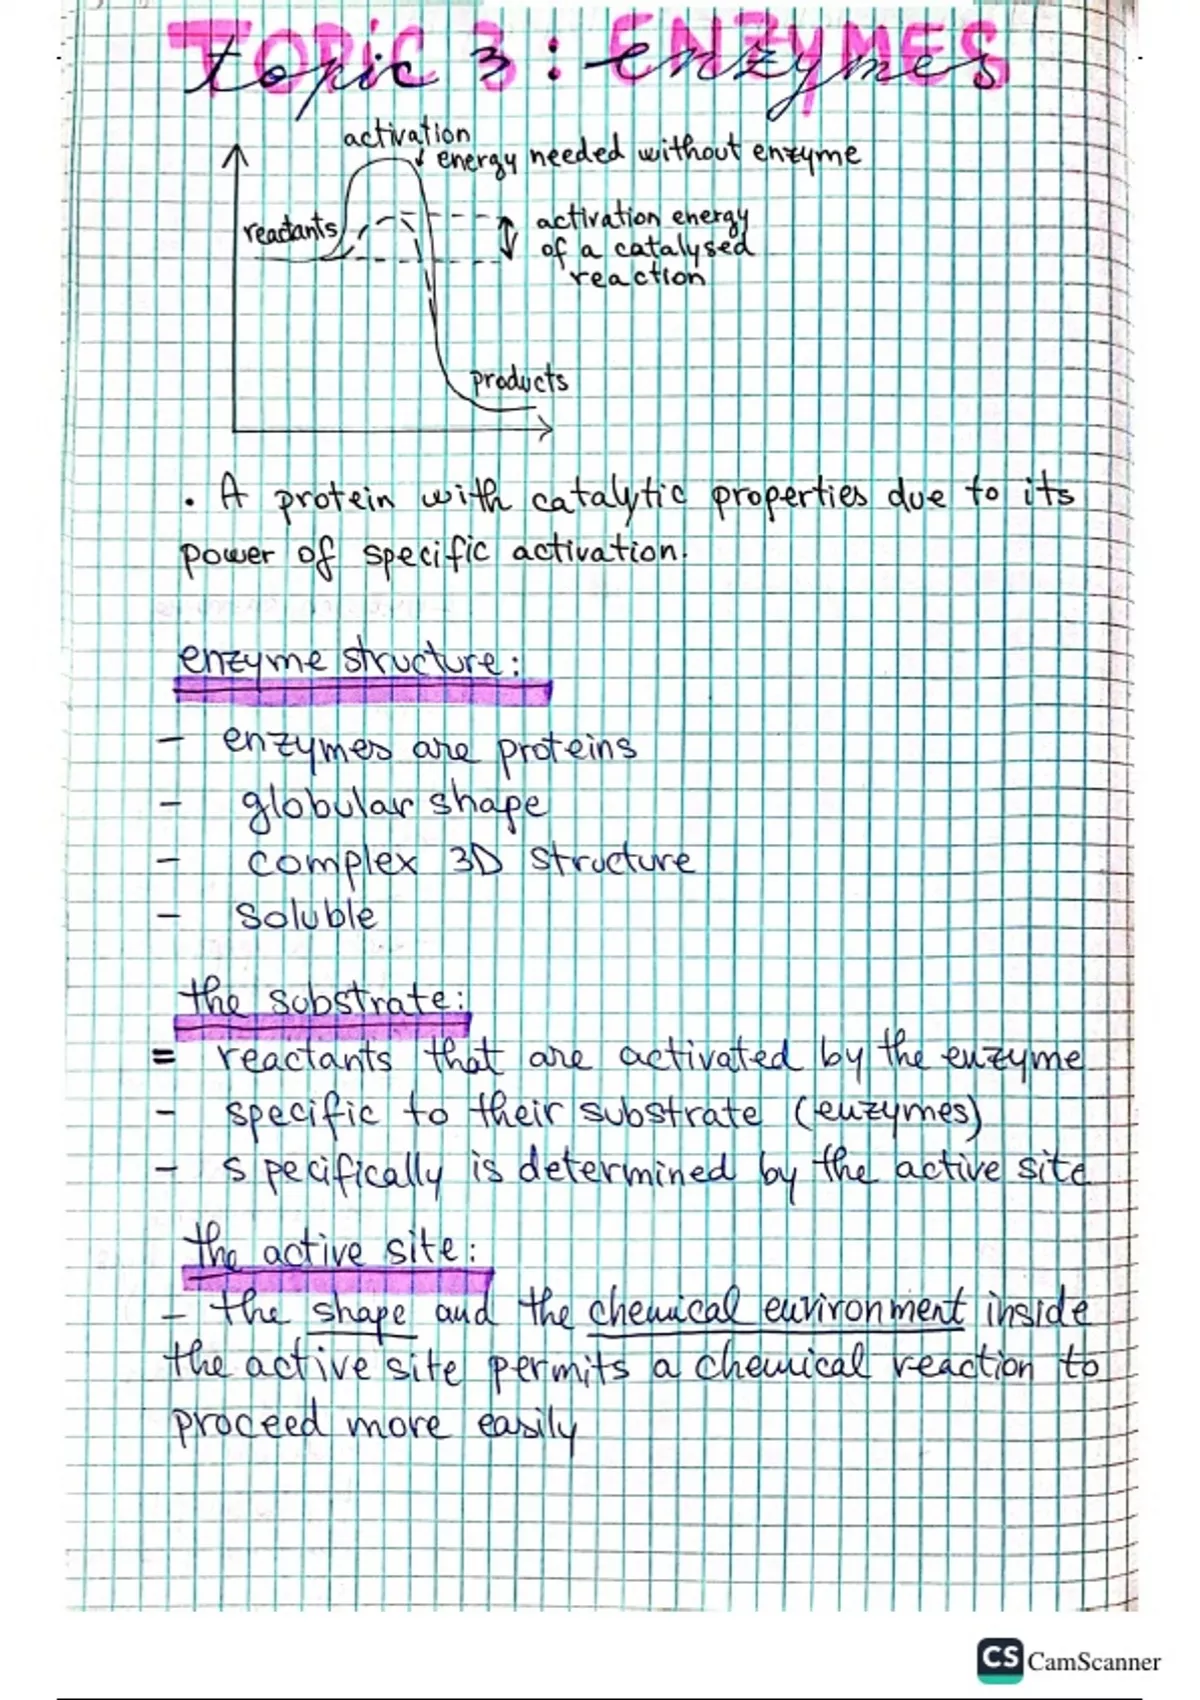 TOPIC 3 : ENZYMES
topic 3 : enzymes
activation
energy needed without enzyme
reactants
activation energy
of a catalysed
reaction
products
• A protein with catalytic properties due to its
power of specific activation.
enzyme structure:
- enzymes are proteins
- globular shape
- complex 3D structure
- soluble
the substrate:
= reactants that are activated by the enzyme
- specific to their substrate (enzymes)
- specifically is determined by the active site
the active site:
- the shape and the chemical environment inside
the active site permits a chemical reaction to
proceed more easily
CS CamScanner